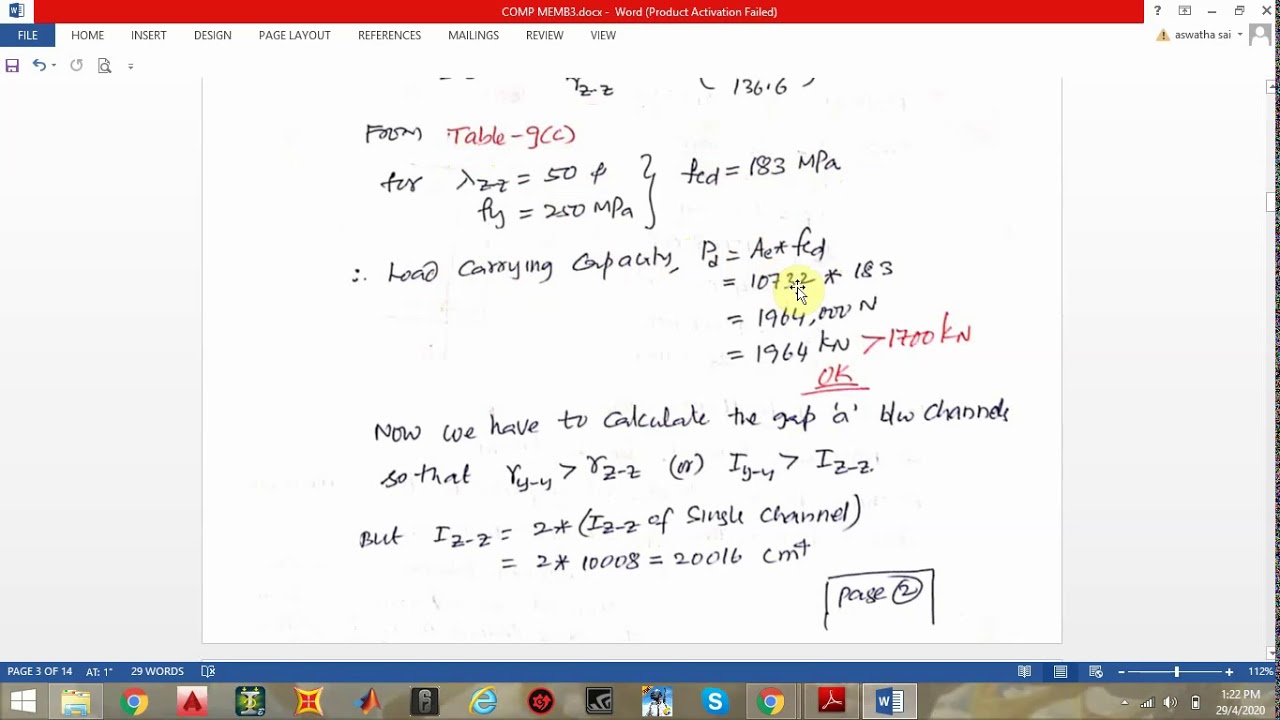 COMP MEMB3.docx - Word (Product Activation Failed)
FILE HOME INSERT DESIGN PAGE LAYOUT REFERENCES MAILINGS REVIEW VIEW aswatha sai
rz-z ( 136.6 )
From Table-9(c)
for λzz = 50 & } fcd = 183 MPa
fy = 250 MPa
∴ Load Carrying Capacity, Pd = Ae*fcd
= 10732 * 183
= 1964,000 N
= 1964 kN >1700 kN
OK
Now we have to calculate the gap 'a' b/w channels
so that ry-y > rz-z (or) Iy-y > Iz-z.
But Iz-z = 2*(Iz-z of Single channel)
= 2* 10008 = 20016 cm⁴
Page ②
PAGE 3 OF 14 AT: 1" 29 WORDS 112%
1:22 PM
29/4/2020